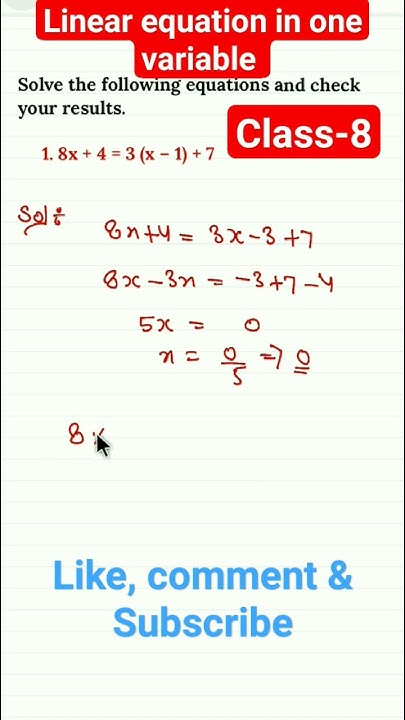 Linear equation in one
variable
Solve the following equations and check
your results.
Class-8
1. 8x + 4 = 3 (x – 1) + 7
Sol :
8x+4 = 3x-3+7
8x-3x = -3+7-4
5x = 0
x = 0/5 => 0
8
Like, comment &
Subscribe